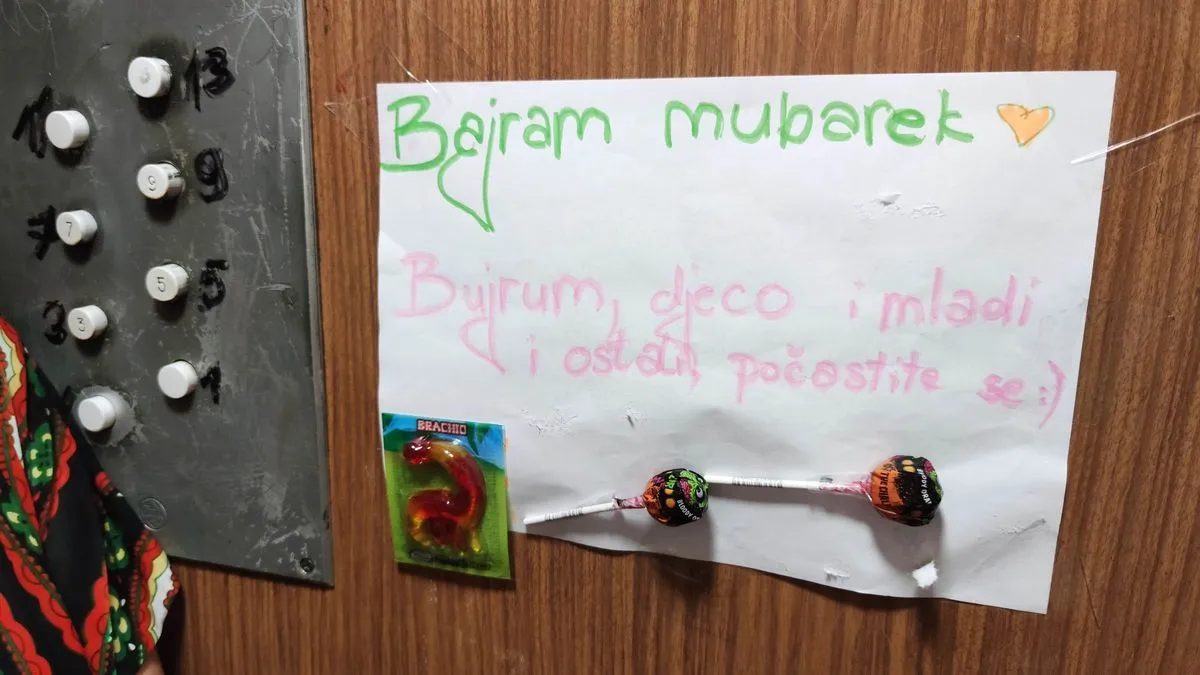 Bajram mubarek
Bujrum, djeco i mladi
i ostali, počastite se :)
BRACHIO
13
11
9
9
7
7
5
5
3
3
1